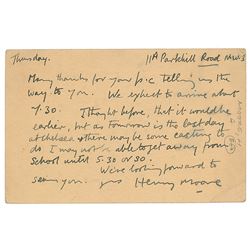 Thursday. 11A Parkhill Road N.W.3
Many thanks for your p.c. telling us the
way to you. We expect to arrive about
7.30. I thought before, that it would be
earlier, but as tomorrow is the last day
at Chelsea & there may be some casting to
do, I may not be able to get away from
school until 5.30 or so.
We're looking forward to
seeing you. yrs Henry Moore